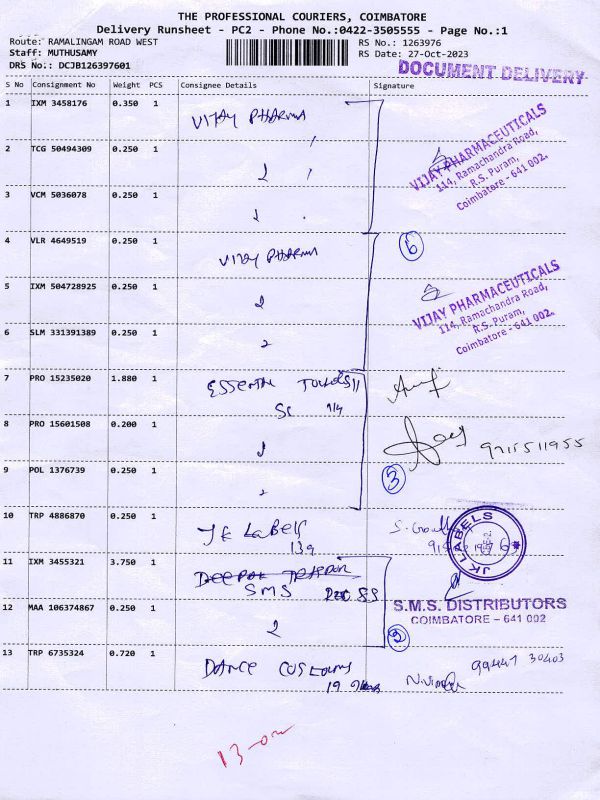 THE PROFESSIONAL COURIERS, COIMBATORE
Delivery Runsheet - PC2 - Phone No.:0422-3505555 - Page No.:1
Route: RAMALINGAM ROAD WEST
RS No.: 1263976
Staff: MUTHUSAMY
RS Date: 27-Oct-2023
DRS No.: DCJB126397601
DOCUMENT DELIVERY
S No Consignment No Weight PCS Consignee Details Signature
1 IXM 3458176 0.350 1 VIJAY PHARMA
VIJAY PHARMACEUTICALS
114, Ramachandra Road,
R.S. Puram,
Coimbatore - 641 002.
2 TCG 50494309 0.250 1
3 VCM 5036078 0.250 1
6
4 VLR 4649519 0.250 1 VIJAY PHARMA
VIJAY PHARMACEUTICALS
114, Ramachandra Road,
R.S. Puram,
Coimbatore - 641 002.
5 IXM 504728925 0.250 1
6 SLM 331391389 0.250 1
7 PRO 15235020 1.880 1
8 PRO 15601508 0.200 1
9715511955
9 POL 1376739 0.250 1
3
10 TRP 4886870 0.250 1 JK LABELS
139
JK LABELS
11 IXM 3455321 3.750 1
SMS
S.M.S. DISTRIBUTORS
COIMBATORE - 641 002
12 MAA 106374867 0.250 1
2
13 TRP 6735324 0.720 1 DANCE
19
99447 30403
13-on